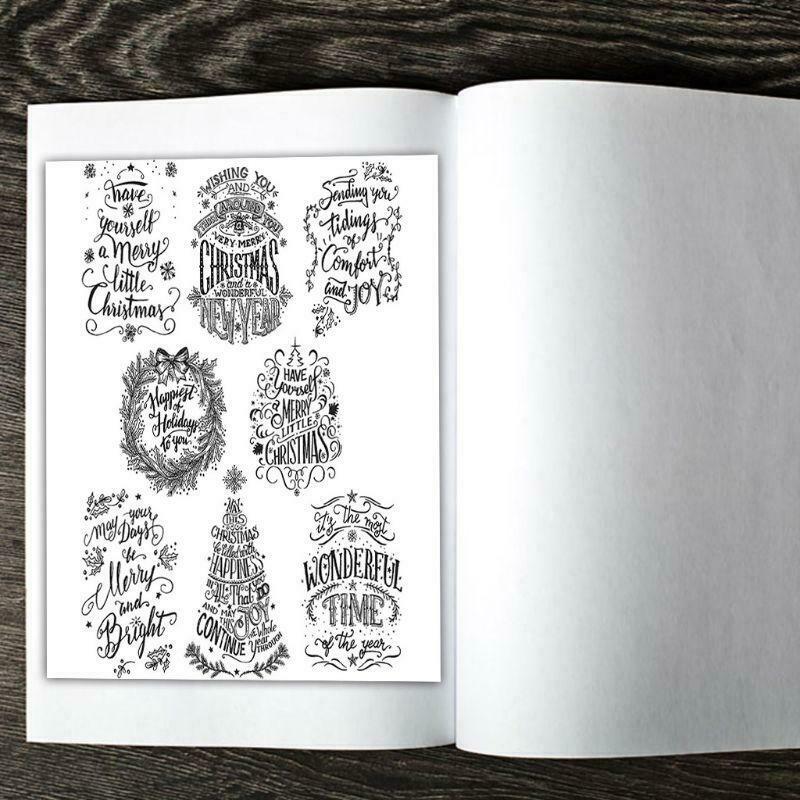 have
yourself
a Merry
little
Christmas
WISHING YOU
AND
THOSE AROUND YOU
A
VERY MERRY
CHRISTMAS
and a
WONDERFUL
NEW YEAR
Sending you
tidings
of
Comfort
and JOY
Happiest
of
Holidays
to you
HAVE
yourself
A MERRY
LITTLE
CHRISTMAS
may your
Days
be
Merry
and
Bright
MAY
THIS
CHRISTMAS
be filled with
HAPPINESS
IN All That you DO
AND MAY
THIS JOY
CONTINUE
the whole
year
THROUGH
it's the most
WONDERFUL
TIME
of the year